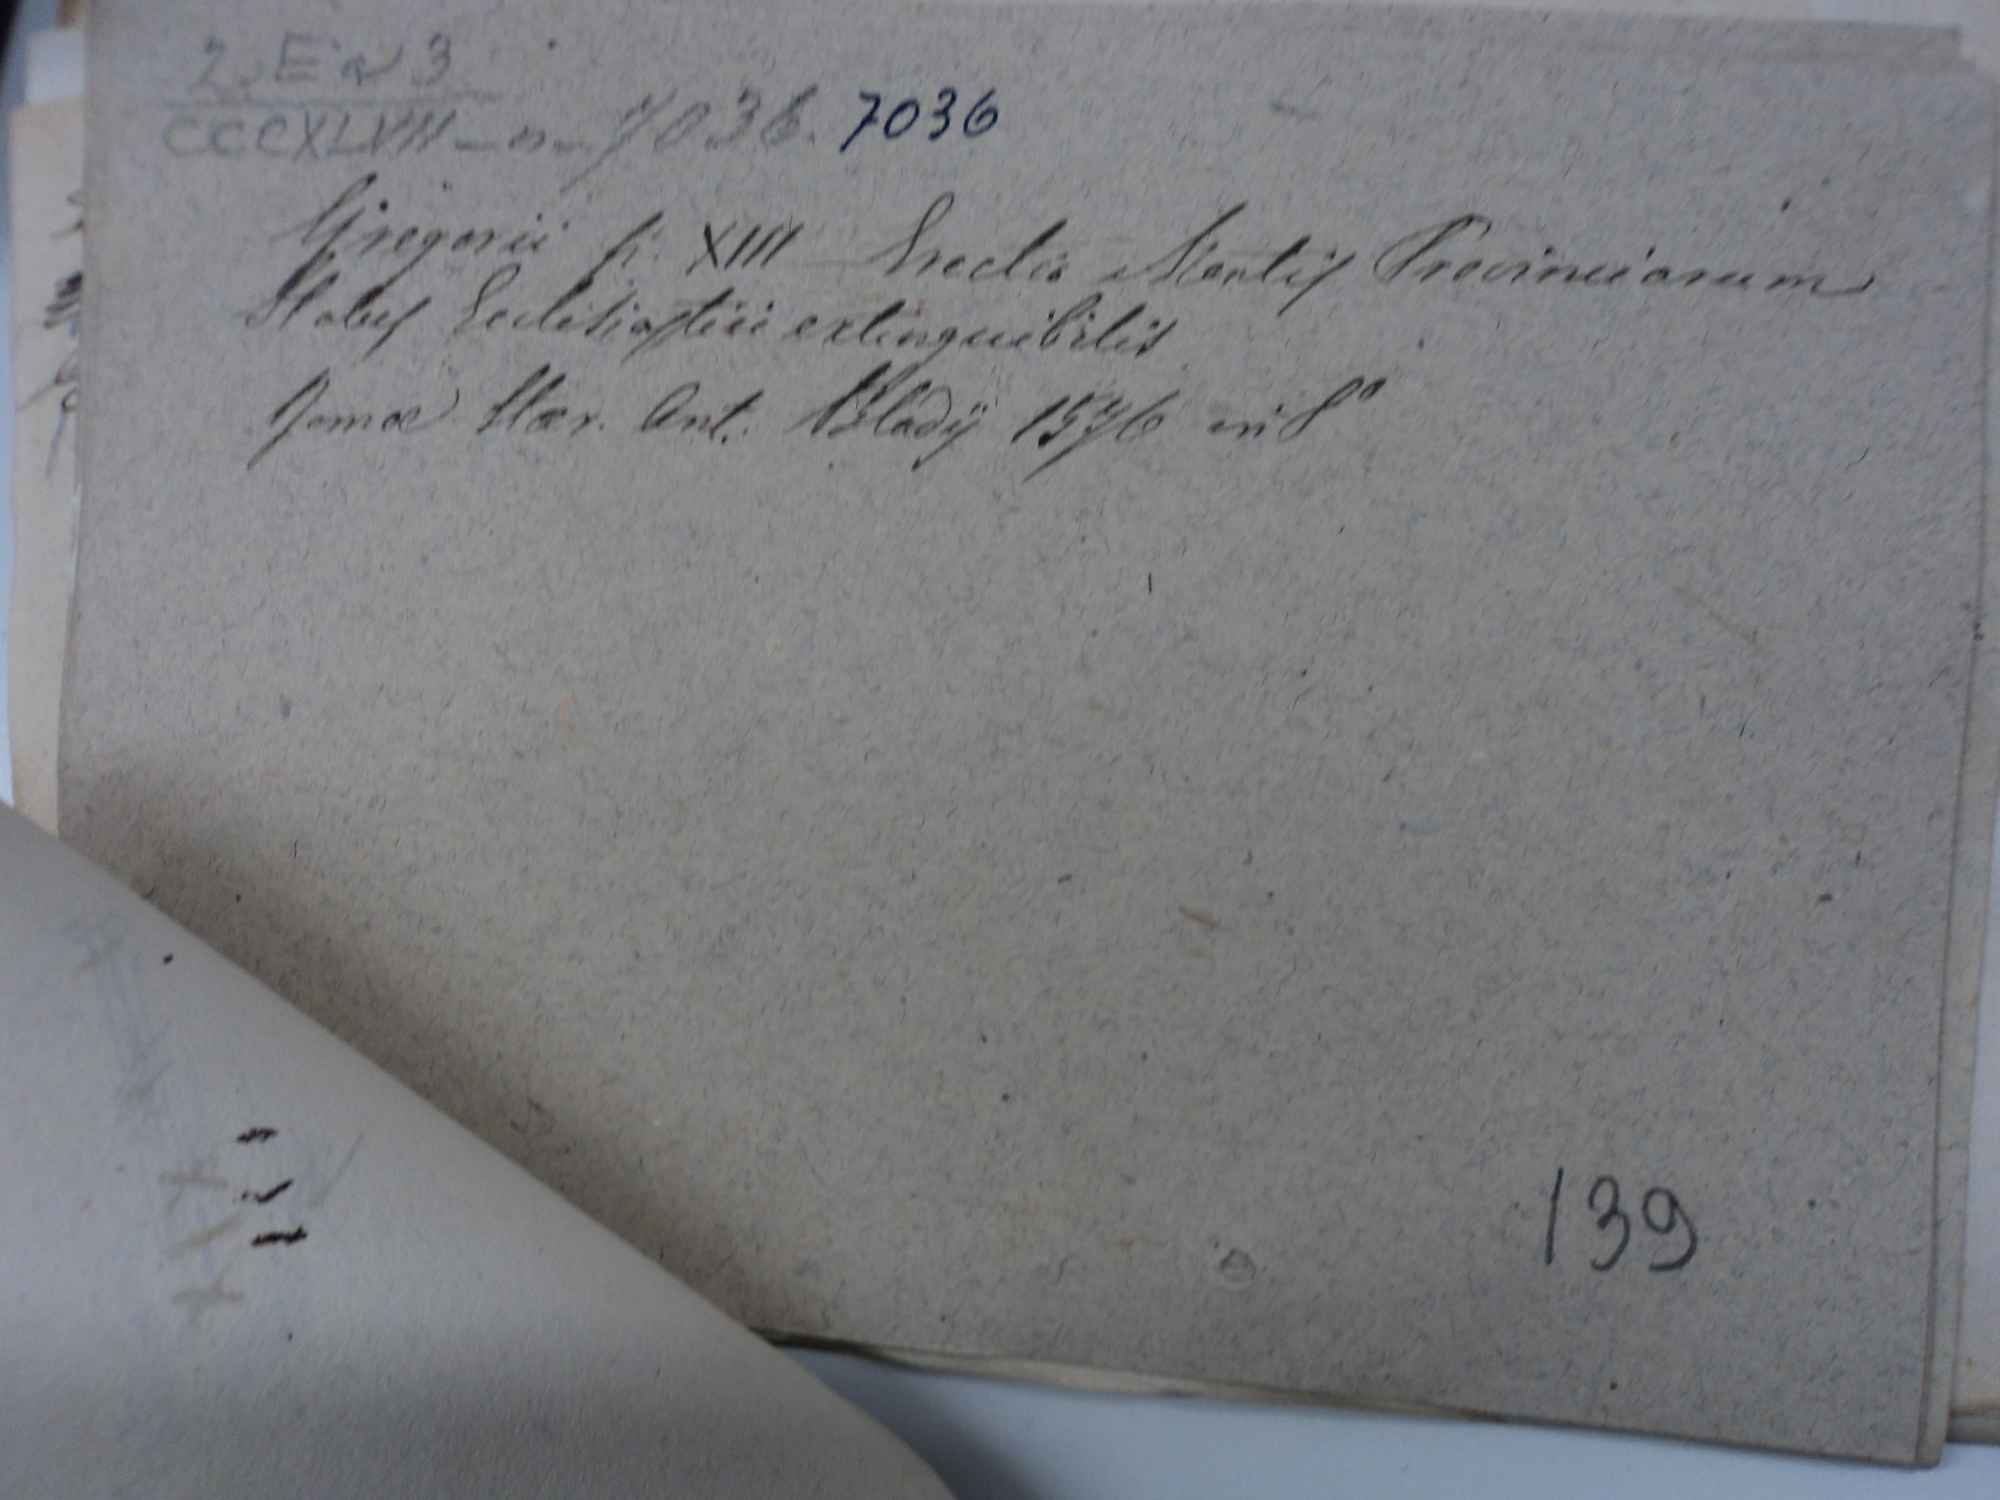 2. E a 3
CCCXLVII - n - 7036. 7036
Gregorii P. XIII Erectio Montis Provinciarum
Status Ecclesiastici extinguibilis
Romae Haer. Ant. Bladij 1576 in 8°
139